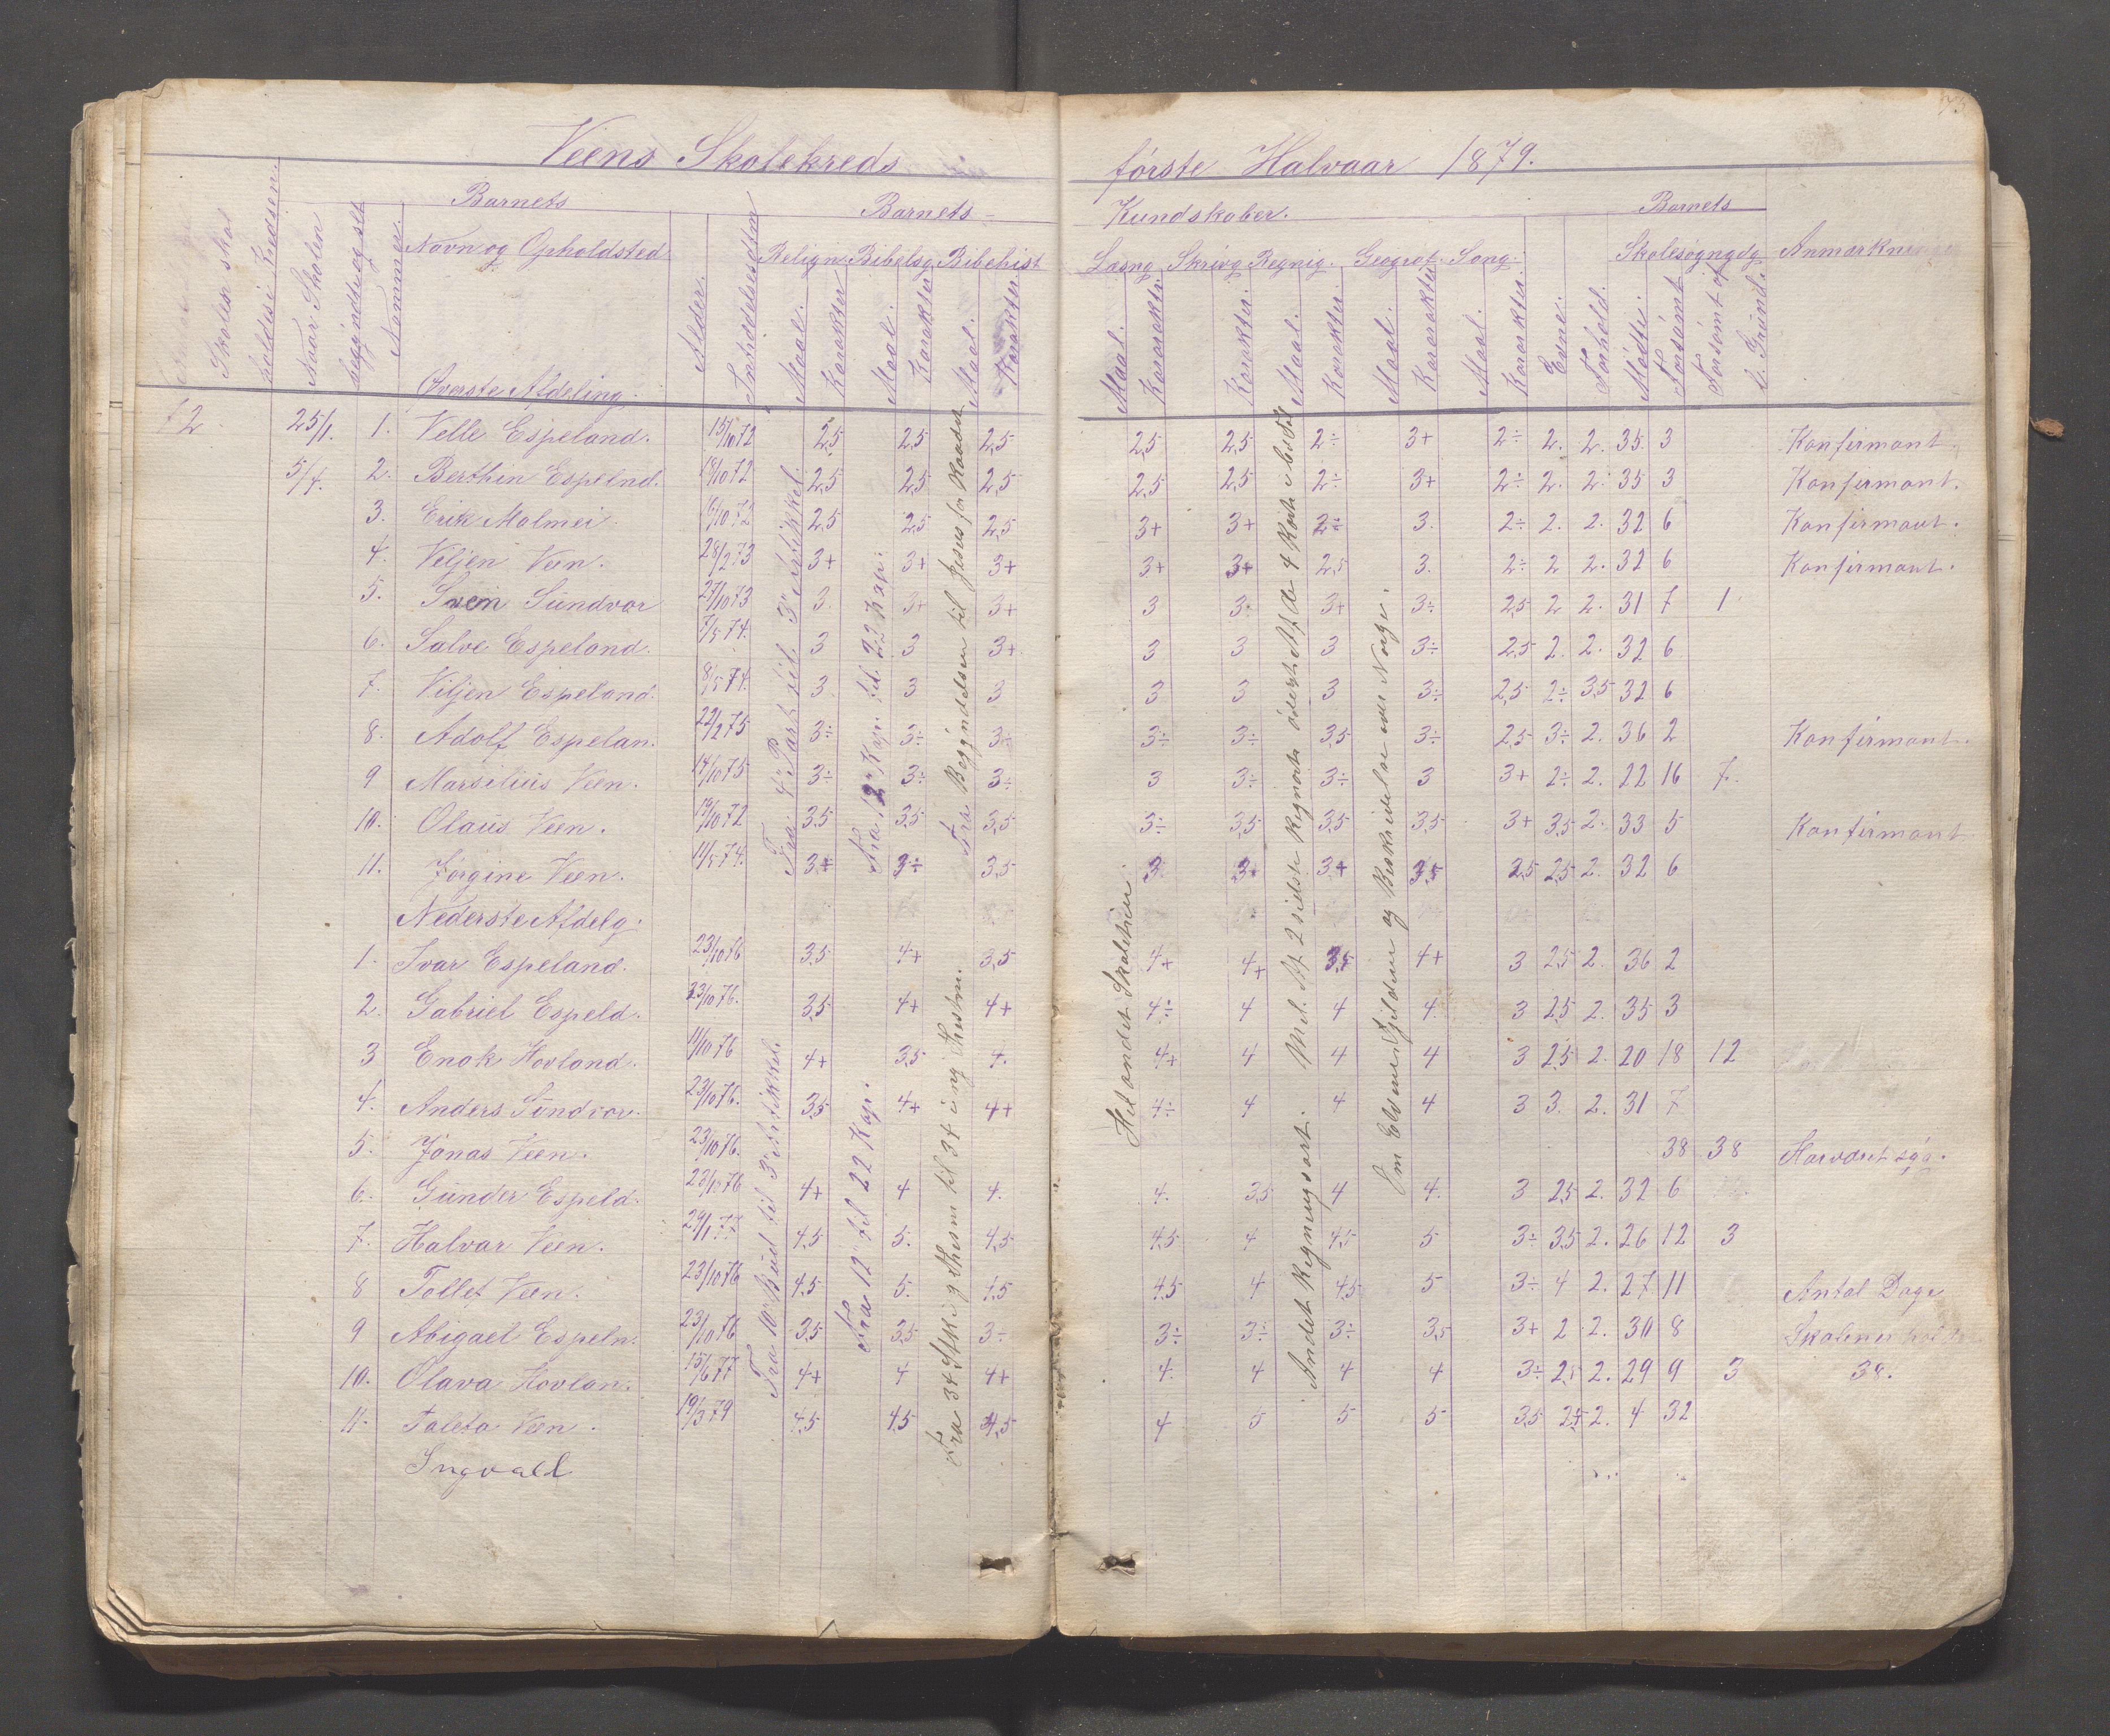 Veens Skolekreds første Halvaar 1879.
73
Barnets Barnets Kundskaber. Barnets
Skolen skal holdes i Kredsen.
Naar Skolen begyndte og slt
Nummer.
Navn og Opholdsted
Alder.
Indtrædelsesdtm
Religin Bibelsg. Bibelhist
Læsng Skrivg Regnig. Geograf. Sang. Skolesøgngdg Anmærkninger
Maal. Karakter Maal. Karakter Maal. Karakter
Maal. Karakter. Karakter. Maal. Karakter. Maal. Karakter Maal. Karakter. Evne. Forhold. Mødte. Forsømt Forsømt af l. Grund.
Øverste Afdeling.
12 25/1. 1. Velle Espeland. 15/10 72 2,5 2,5 2,5 2,5 2,5 2÷ 3+ 2÷ 2. 2. 35. 3 Konfirmant.
5/4. 2. Berthin Espelnd. 18/10 72 2,5 2,5 2,5 2,5 2,5 2÷ 3+ 2÷ 2. 2. 35 3 Konfirmant.
3. Erik Malmei. 16/10 72 2,5 2,5 2,5 3+ 3+ 2÷ 3. 2÷ 2. 2. 32 6 Konfirmant.
4. Veljen Veen. 28/2 73 3+ 3+ 3+ 3+ 3+ 2,5 3. 2÷ 2 2. 32 6 Konfirmant.
5. Svein Sundvor 27/10 73 3. 3+ 3+ 3 3. 3+ 3÷ 2,5 2 2. 31 7 1
6. Salve Espeland. 7/5 74. 3 3 3+ 3 3 3 3÷ 2,5 2. 2. 32 6
7. Viljen Espeland. 8/5 74. 3. 3 3 3 3 3 3÷ 2,5 2÷ 3,5 32 6
8. Adolf Espelan. 22/2 75 3÷ 3÷ 3÷ 3÷ 3÷ 3,5 3÷ 2,5 3÷ 2. 36 2 Konfirmant.
9 Marselius Veen. 14/10 75 3÷ 3÷ 3÷ 3 3÷ 3÷ 3 3+ 2÷ 2. 22 16 7.
10. Olaus Veen. 19/10 72 3,5 3,5 3,5 3÷ 3,5 3,5 3,5 3+ 3,5 2. 33 5 Konfirmant
11. Jørgine Veen. 11/5 74. 3+ 3÷ 3,5 3 3+ 3+ 3,5 2,5 2,5 2. 32 6
Nederste Afdelg.
1. Ivar Espeland. 23/10 76 3,5 4+ 3,5 4+ 4+ 3,5 4+ 3 2,5 2. 36 2
2. Gabriel Espeld. 23/10 76. 3,5 4+ 4+ 4÷ 4 4 4. 3 2,5 2. 35 3
3 Enok Hovland. 11/10 76 4+ 3,5 4. 4+ 4 4 4 3 2,5 2. 20 18 12
4. Anders Sundvor. 23/10 76. 3,5 4+ 4+ 4÷ 4 4 4 3 3. 2. 31 7
5. Jonas Veen. 23/10 76. 38 38 Har været syg.
6. Gunder Espeld. 23/10 76 4+ 4 4. 4. 3,5 4 4. 3 2,5 2. 32 6
7. Halvar Veen. 29/1 77 4,5 5. 4,5 4,5 4 4,5 5 3÷ 3,5 2. 26 12 3
8 Tollef Veen. 23/10 76 4,5 5. 4,5 4,5 4 4,5 5 3÷ 4 2. 27 11 Antal Dage
9 Abigael Espeln. 23/10 76 3,5 3,5 3÷ 3÷ 3÷ 3÷ 3,5 3+ 2 2. 30 8 Skolen er holdt
10. Olava Hovlan. 15/6 77 4+ 4 4+ 4. 4 4 4 3÷ 2,5 2. 29 9 3 38.
11. Taleta Veen. 19/3 79 4,5 4,5 4,5 4 5 5 5 3,5 2,5 2. 4 32
Ingvald
Fra 4" Part til 3" Artikkel.
Fra 10" Bud til 3" Artikkel.
Fra 12" Kap. til 22 Kap.
Fra 12" til 22 Kap.
Fra Begyndelsen til Jesus for Raadet
Fra 34 Stk. i g Thestm til 34 i ny Thestm.
Hel andet Skoletrin.
Mel. Af 2 sidste Regnearter øverste Af. de 4 Rart i bd Tal
Andet Regningsart.
Om Elvene, Fjeldene og Beskrivelse over Norge.